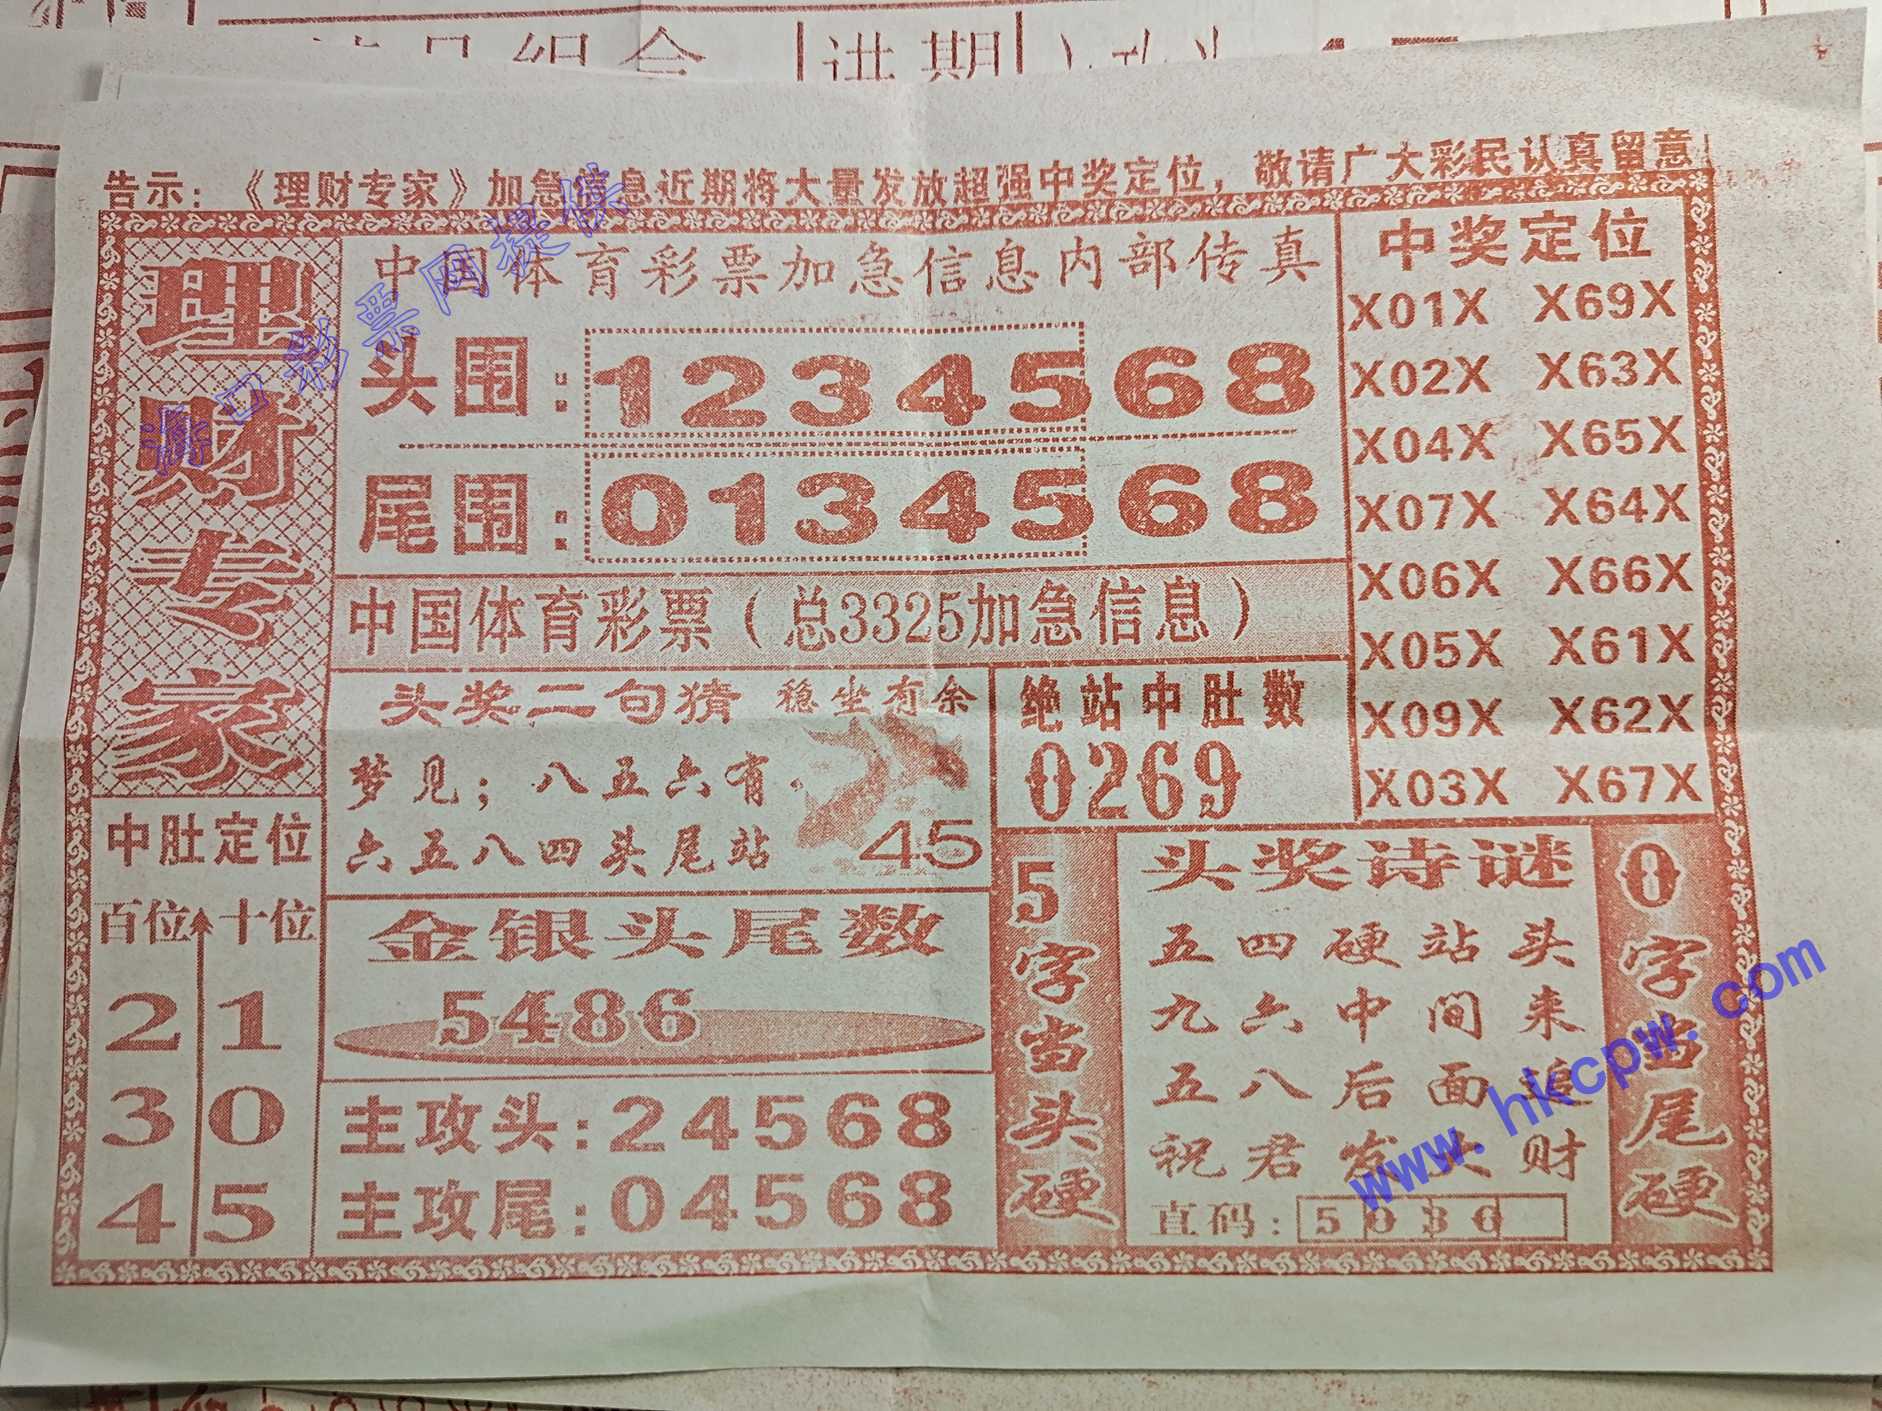 组合
进期
告示：《理财专家》加急信息近期将大量发放超强中奖定位，敬请广大彩民认真留意
理财专家
中国体育彩票加急信息内部传真
头围：1234568
尾围：0134568
中国体育彩票（总3325加急信息）
中奖定位
X01X X69X
X02X X63X
X04X X65X
X07X X64X
X06X X66X
X05X X61X
X09X X62X
X03X X67X
头奖二句猜 稳坐有余
梦见；八五六有
六五八四头尾站 45
绝站中肚数
0269
中肚定位
百位 十位
2 1
3 0
4 5
金银头尾数
5486
主攻头：24568
主攻尾：04568
5字当头硬
头奖诗谜
五四硬站头
九六中间来
五八后面追
祝君发大财
直码：5036
0字当尾硬
海口彩票网提供
www.hkcpw.com